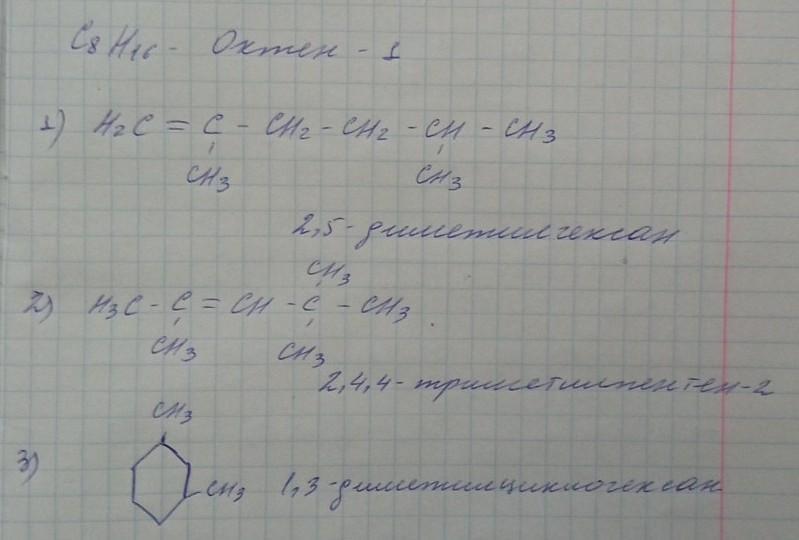 C8H16 - Октен - 1
1) H2C = C - CH2 - CH2 - CH - CH3
CH3 CH3
2,5-диметилгексан
CH3
2) H3C - C = CH - C - CH3
CH3 CH3
2,4,4-триметилпентен-2
CH3
3) CH3 1,3-диметилциклогексан